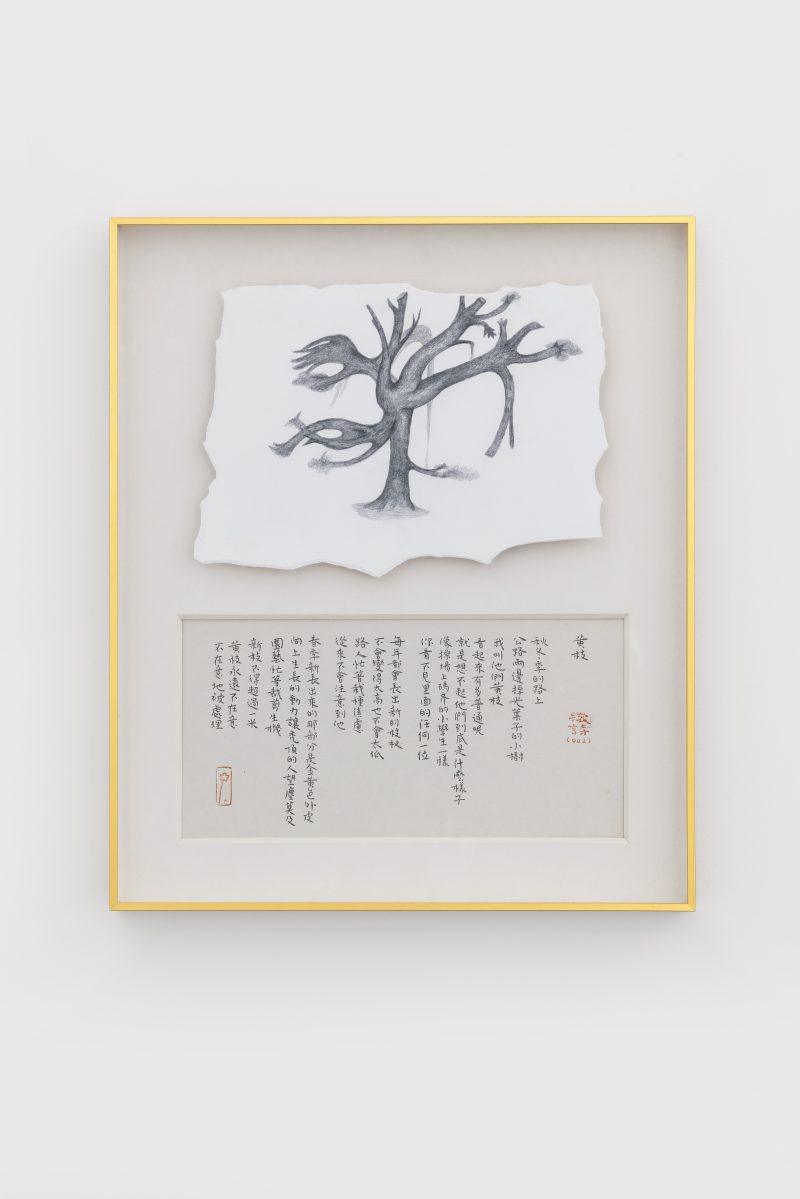 黃枝
秋冬季的路上
公路兩邊掉光葉子的小樹
我叫他們黃枝
看起來有多普通呢
就是想不起他們到底是什麼樣子
像操場上瑀界的小學生一樣
你看不見里面的任何一位
每年都會長出新的枝杈
不會變得太高也不會太低
路人忙着栽種焦慮
從來不會注意到他
春季新長出來的那部分是金黃色外皮
向上生長的動力讓禿頂的人望塵莫及
園藝忙着裁剪生機
新枝不得超過一米
黃枝永遠不在意
不在意地被處理
(002)